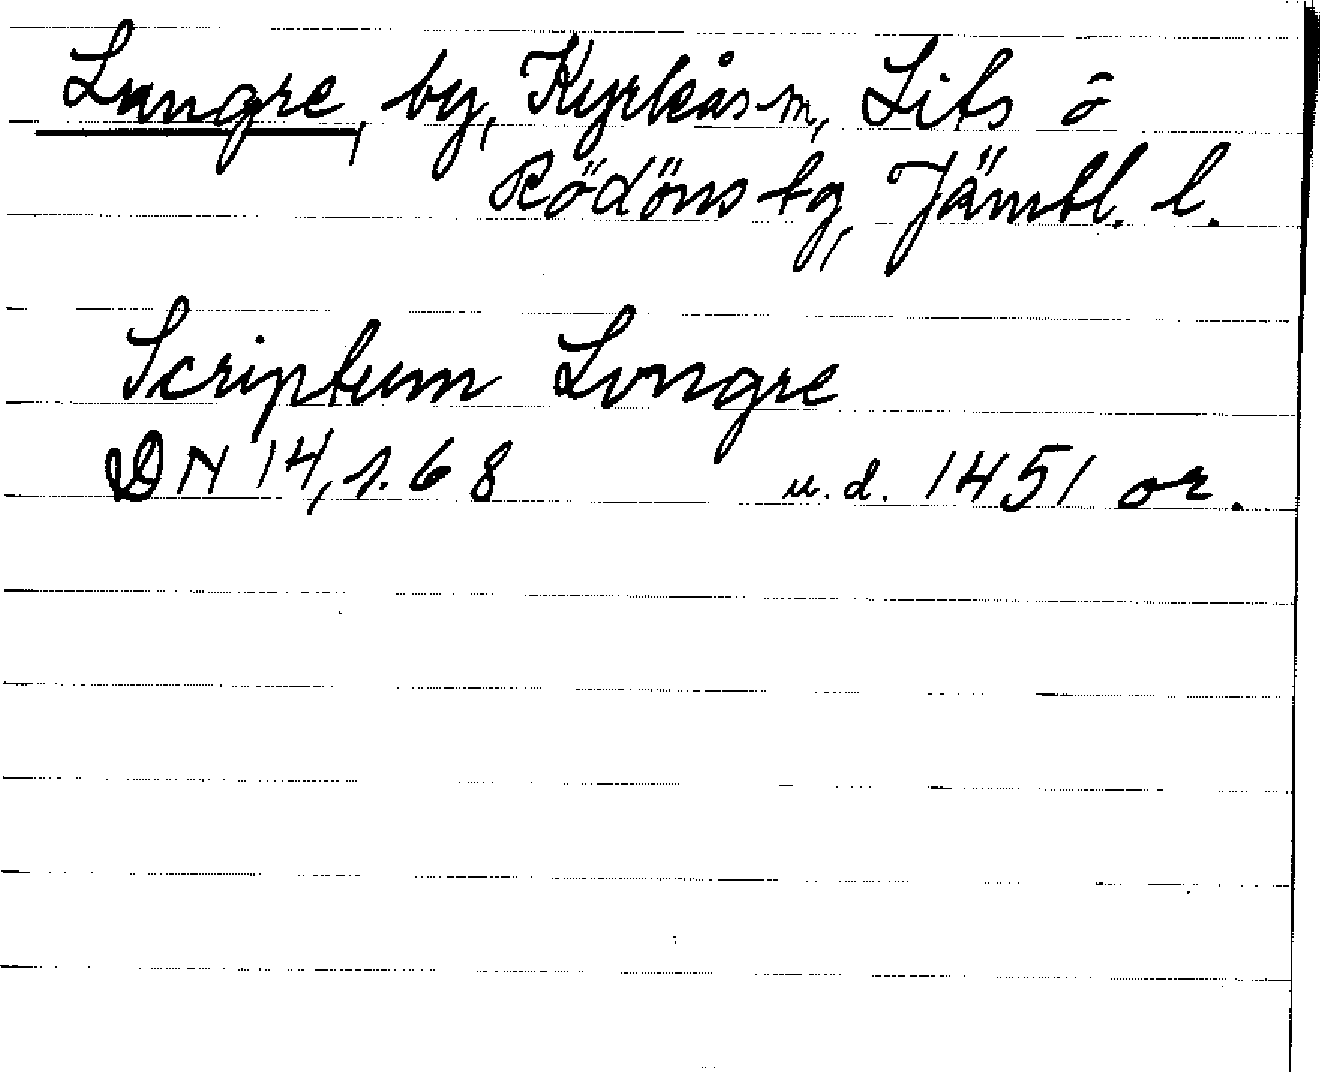 Lungre, by, Kyrkås sn, Lits o
Rödöns tg, Jämtl. l.
Scriptum Longre
DN 14, s. 68 u.d. 1451 or.